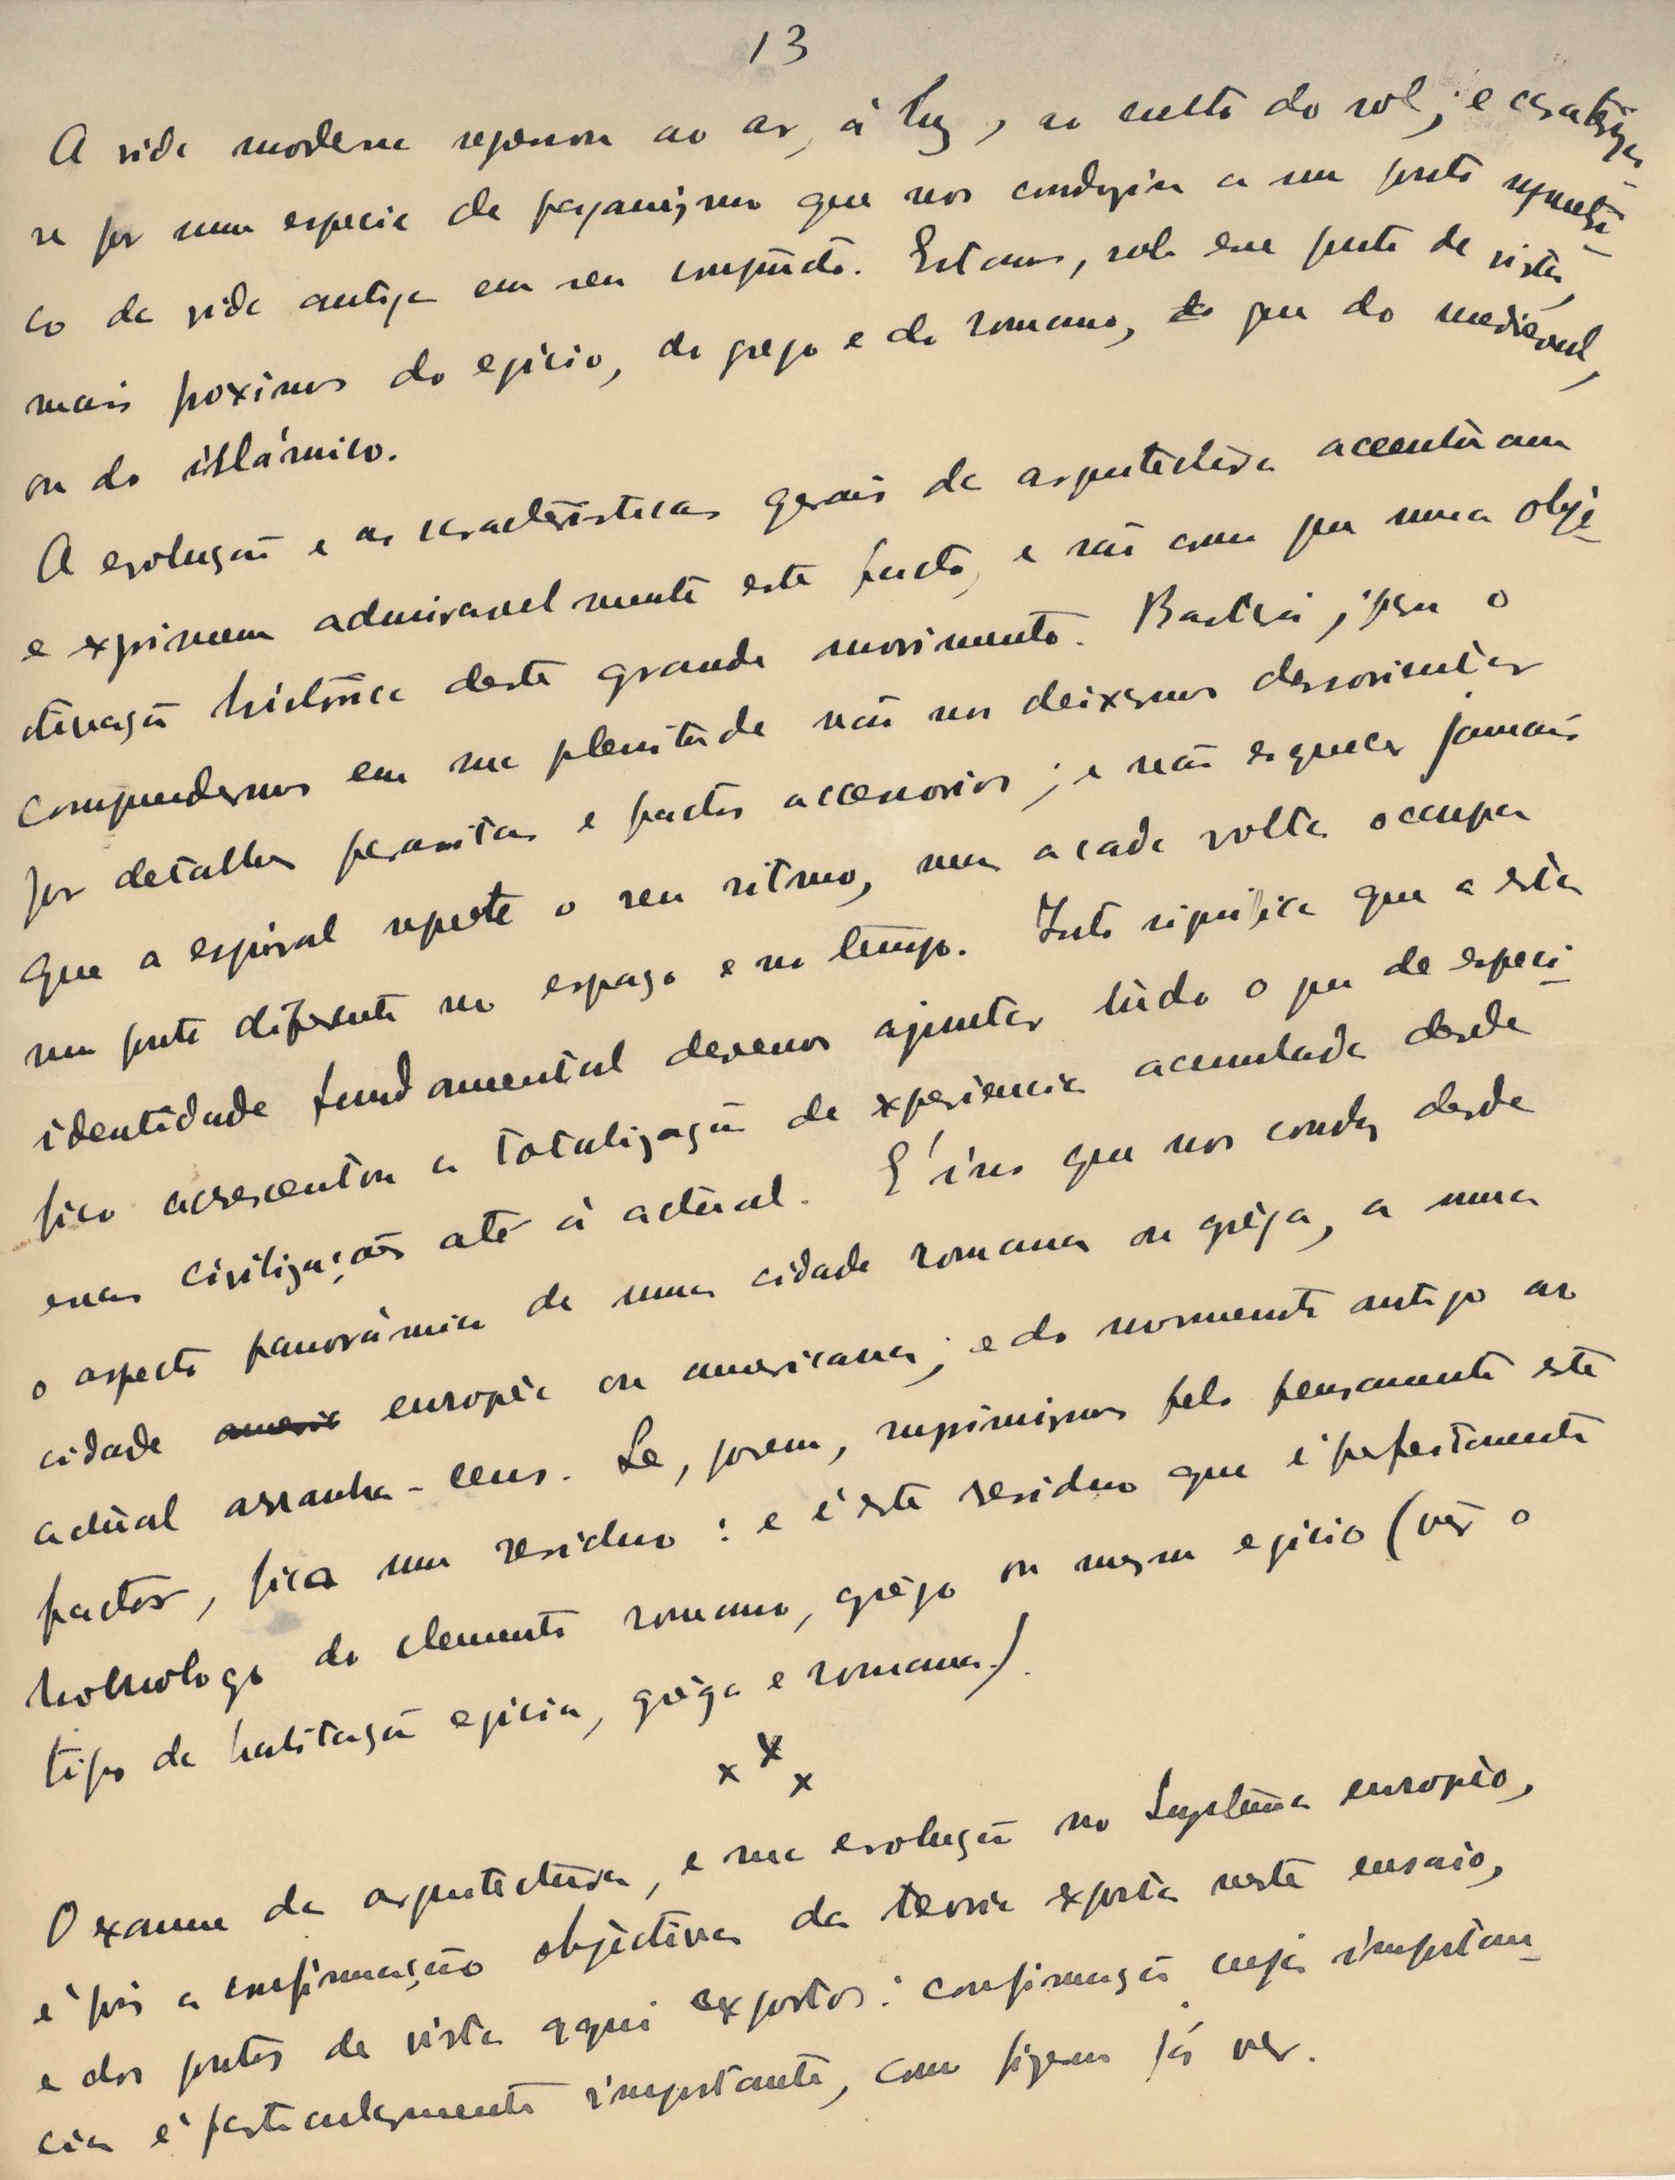 13
A vida moderna regressou ao ar, à luz, ao culto do sol; e caracteriza
se por uma especie de paganismo que nos conduziu a um ponto synthéti-
co da vida antiga em seu conjuncto. Estamos, sob esse ponto de vista,
mais proximos do egicio, do grego e do romano, do que do mediéval,
ou do islámico.
A evolução e as caracteristicas gerais da arquitectura accentúam
e exprimem admiravelmente este facto, e são como que uma obje-
ctivação histórica deste grande movimento. Bastará, para o
comprendermos em sua plenitude não nos deixarmos desorientar
por detalhes parasitas e factos accessorios; e não esquecer jamais
que a espiral repete o seu ritmo, mas a cada volta occupa
um ponto diferente no espaço e no tempo. Isto significa que a esta
identidade fundamental devemos ajuntar túdo o que de especi-
fico acrescentou a totalização da experiencia acumulada desde
essas civilizações até á actúal. E' isso que nos conduz desde
o aspecto panorámico de uma cidade romana ou grêga, a uma
cidade européa ou americana; e do monumento antigo ao
actúal arranha-ceus. Se, porem, suprimirmos pelo pensamento este
factor, fica um residuo: e é este residuo que é perfeitamente
homologo do elemento romano, grêgo ou mesmo egicio (vêr o
tipo de habitação egicia, grêga e romana).
x x x
O exame da arquitectura, e sua evolução no européo,
é pois a confirmação objéctiva da teoria exposta neste ensaio,
e dos pontos de vista aqui expostos: confirmação cuja importan-
cia é particularmente importante, como fizemos já ver.